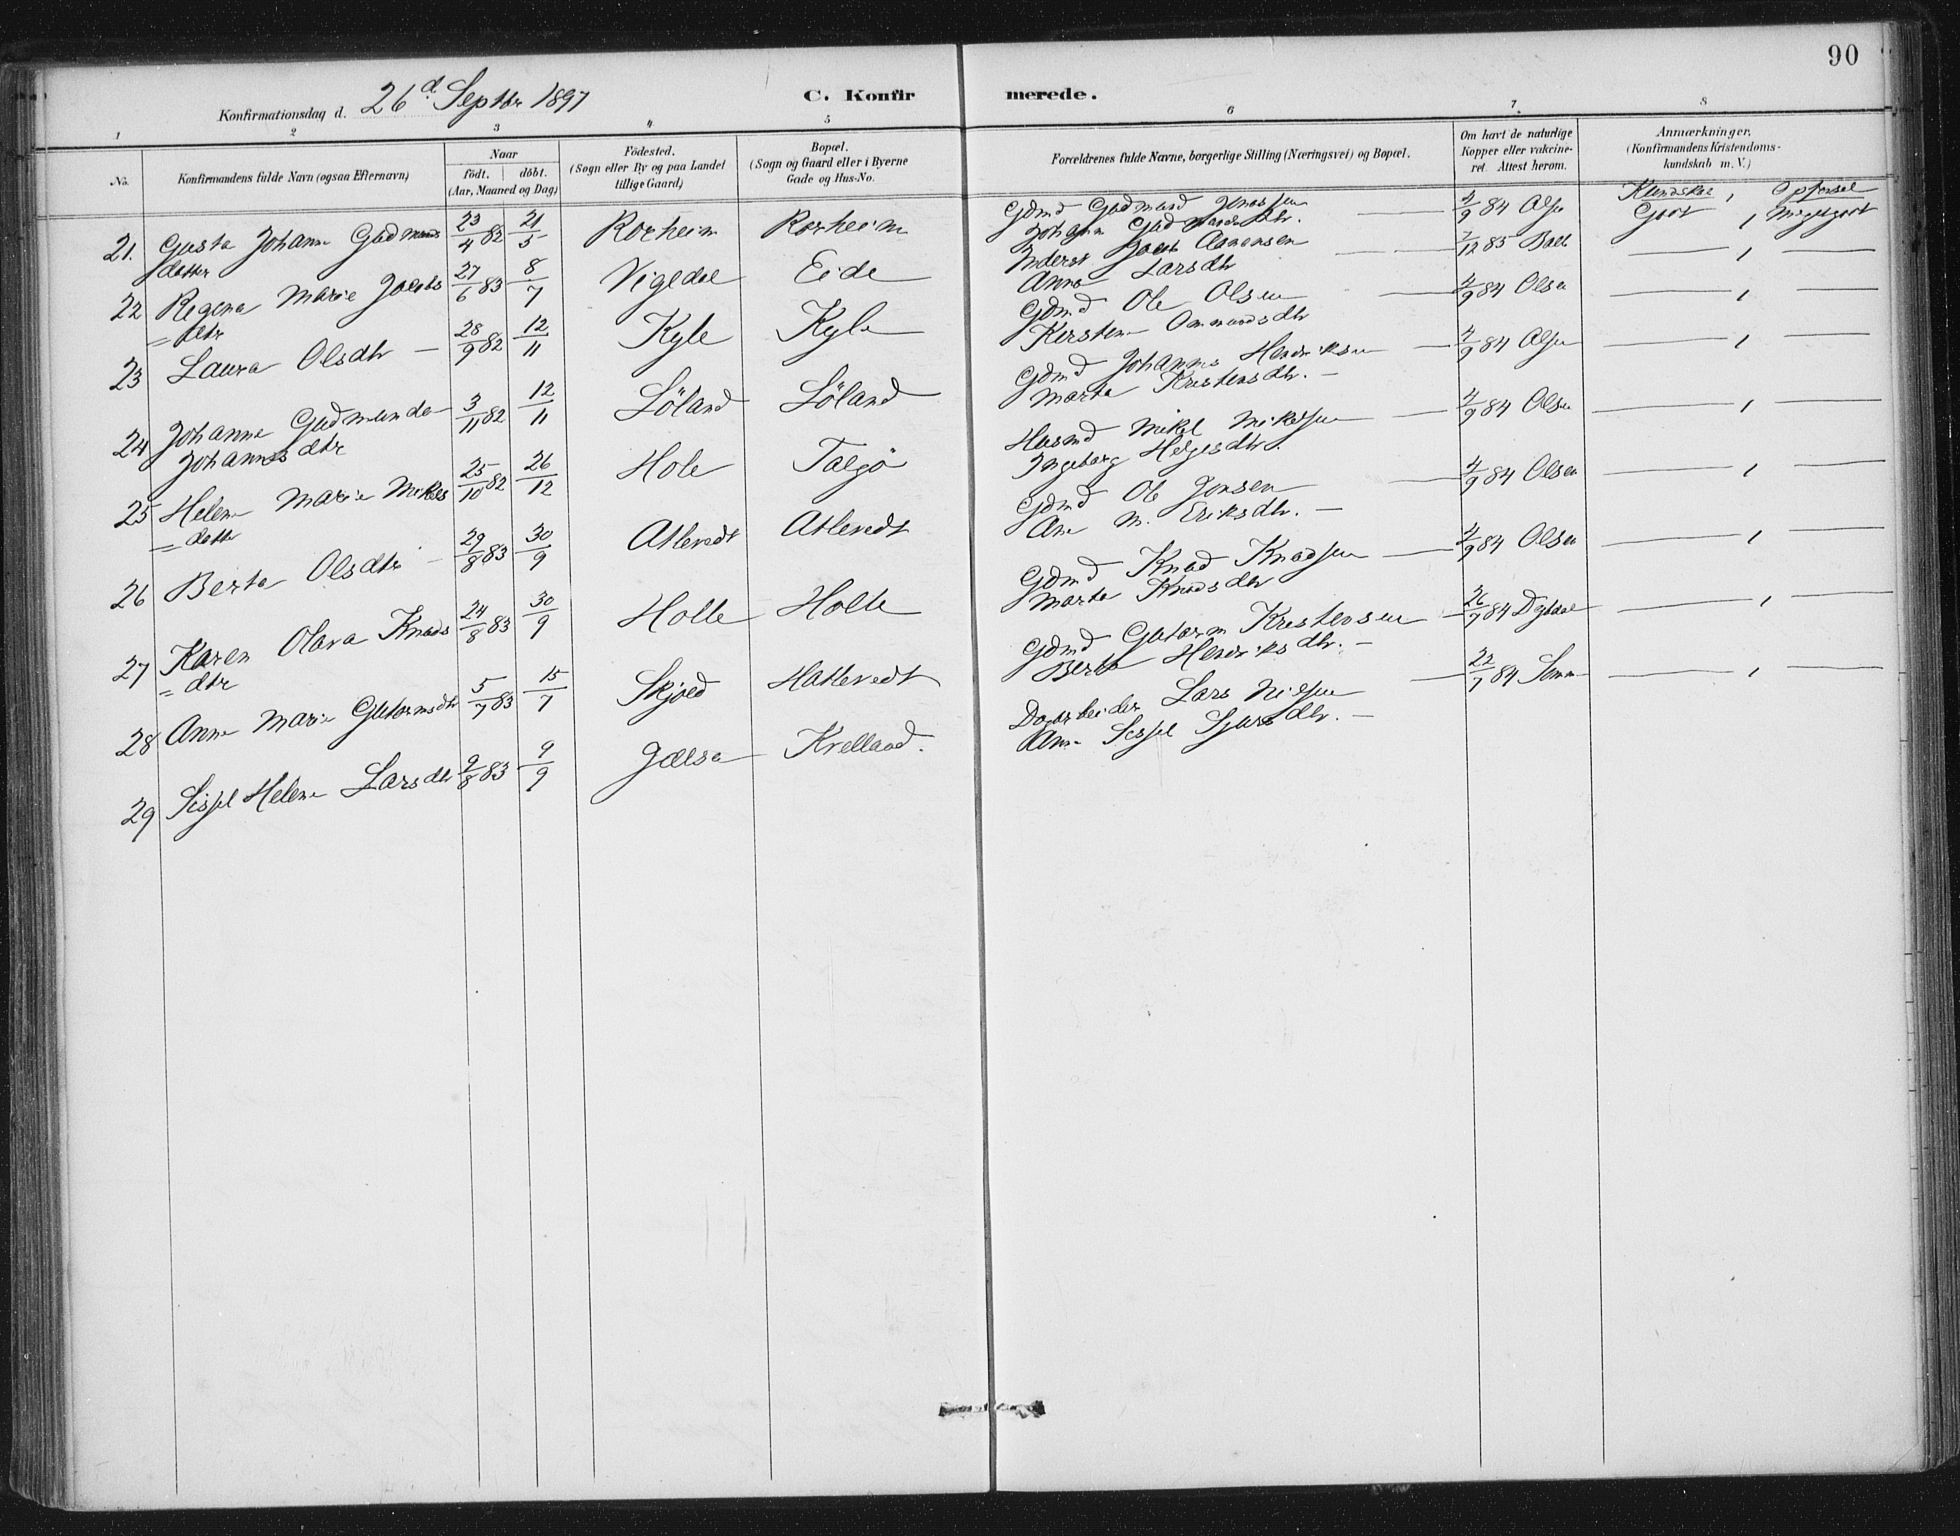 90
Konfirmationsdag d. 26d. Septbr 1897
C. Konfirmerede.
1 2 3 4 5 6 7. 8
No.
Konfirmandens fulde Navn (ogsaa Efternavn)
Naar
födt. döbt.
(Aar, Maaned og Dag)
Födested.
(Sogn eller By og paa Landet
tillige Gaard)
Bopæl.
(Sogn og Gaard eller i Byerne
Gade og Hus-No.
Forældrenes fulde Navne, borgerlige Stilling (Næringsvei) og Bopæl.
Om havt de naturlige
Kopper eller vakcine-
ret. Attest herom.
Anmærkninger.
(Konfirmandens Kristendoms-
kundskab m. V.)
21. Gusta Johanne Gudmunds 23/4 82 21/5 Rorheim Rorheim Gdmd Gudmund Jonassen 4/9 84 Olsen Kundskab, Opförsel
datter Johanne Gudmundsdtr. Godt, Megetgodt
22 Regina Marie Jacobs 27/6 83 8/7 Vigedal Eide Inderst Jacob Aanensen 7/12 85
= dtr Anna Larsdtr
23 Laura Olsdtr — 28/9 82 12/11 Kyle Kyle Gdmd Ole Olsen — 4/9 84 Olsen
Kirsten Ommundsdtr
24 Johanne Gudmunda 3/11 82 12/11 Löland Löland Gdmd Johannes Henriksen — 4/9 84 Olsen
Johannesdtr Marta Kristensdtr. —
25 Helene Marie Mikels 25/10 82 26/12 Hole Talgö Husmd Mikel Mikelsen — 4/9 84 Olsen
= datter Ingeborg Helgesdtr.
26 Berta Olsdtr — 29/8 83 30/9 Atlevedt Atlevedt Gdmd Ole Jonsen 4/9 84 Olsen
Ane M. Eriksdtr. —
27 Karen Olava Knuds 24/8 83 30/9 Holle Holle Gdmd Knud Knudsen — 4/9 84 Olsen
= dtr Marta Knudsdtr
28 Anne Marie Gutormsdtr 5/7 83 15/7 Skjold Hatlevedt Gdmd Gutorm Kristensen — 26/7 84
Berta Henriksdtr. —
29 Sissel Helene Larsdtr 9/8 83 9/9 Jælsa Krelland. Dagarbeider Lars Nilsen — 22/7 84
Ane Sissel Sjursdtr. —